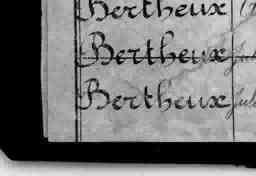 Bertheux
Bertheux Jul
Bertheux Jul